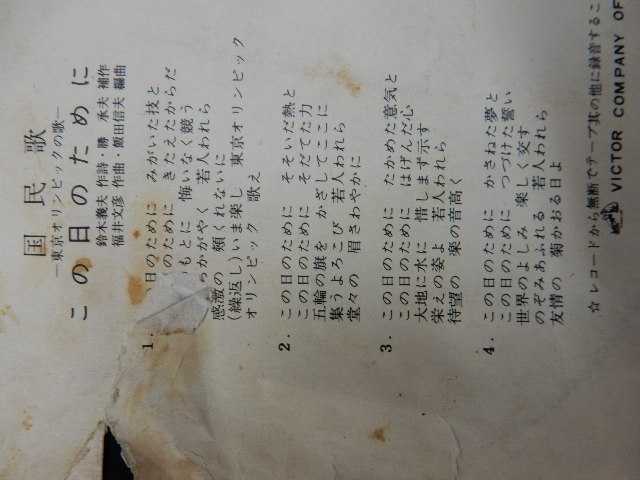 国民歌
―東京オリンピックの歌―
この日のために
鈴木義夫 作詩・勝 承夫 補作
福井文彦 作曲・飯田信夫 編曲
1.
日のために みがいた技と
のために きたえたからだ
もとに 悔いなく競う
らかがやく 若人われら
感激の 頬くれないに
(繰返し)いま楽し 東京オリンピック
オリンピック 歌え
2.
この日のために そそいだ熱と
この日のために そだてた力
五輪の旗を かざしてここに
集うよろこび 若人われら
堂々の 眉さわやかに
3.
この日のために たかめた意気と
この日のために はげんだ心
大地に水に 惜しまず示す
栄えの姿よ 若人われら
待望の 楽の音高く
4.
この日のために かさねた夢と
この日のために つづけた誓い
世界のよしみ 楽しく交す
のぞみあふれる 若人われら
友情の 菊かおる日よ
☆レコードから無断でテープ其の他に録音するこ
VICTOR COMPANY OF